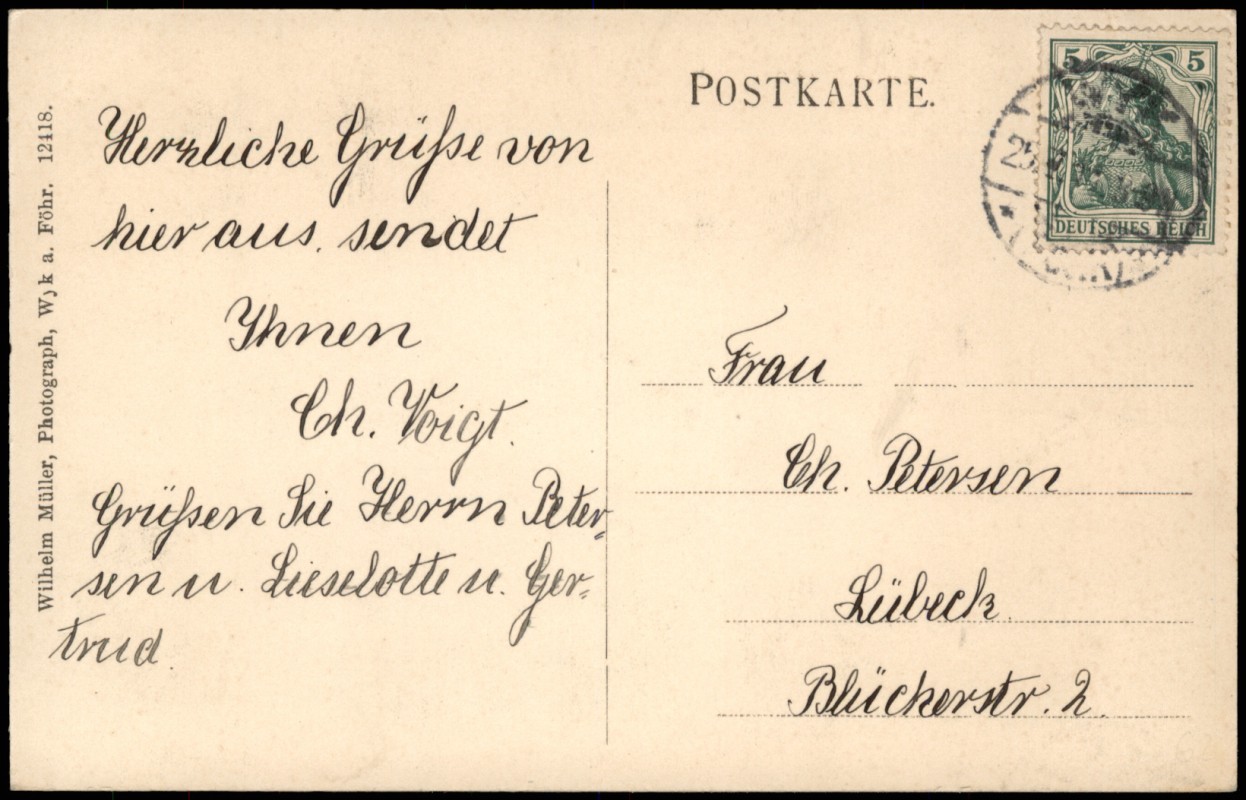 POSTKARTE.
5 5
DEUTSCHES REICH
25
Wilhelm Müller, Photograph, Wyk a. Föhr. 12418.
Herzliche Grüße von
hier aus, sendet
Ihnen
Ch. Voigt.
Grüßen Sie Herrn Peter-
sen u. Lieselotte u. Ger-
trud.
Frau
Ch. Petersen
Lübeck.
Blücherstr. 2.